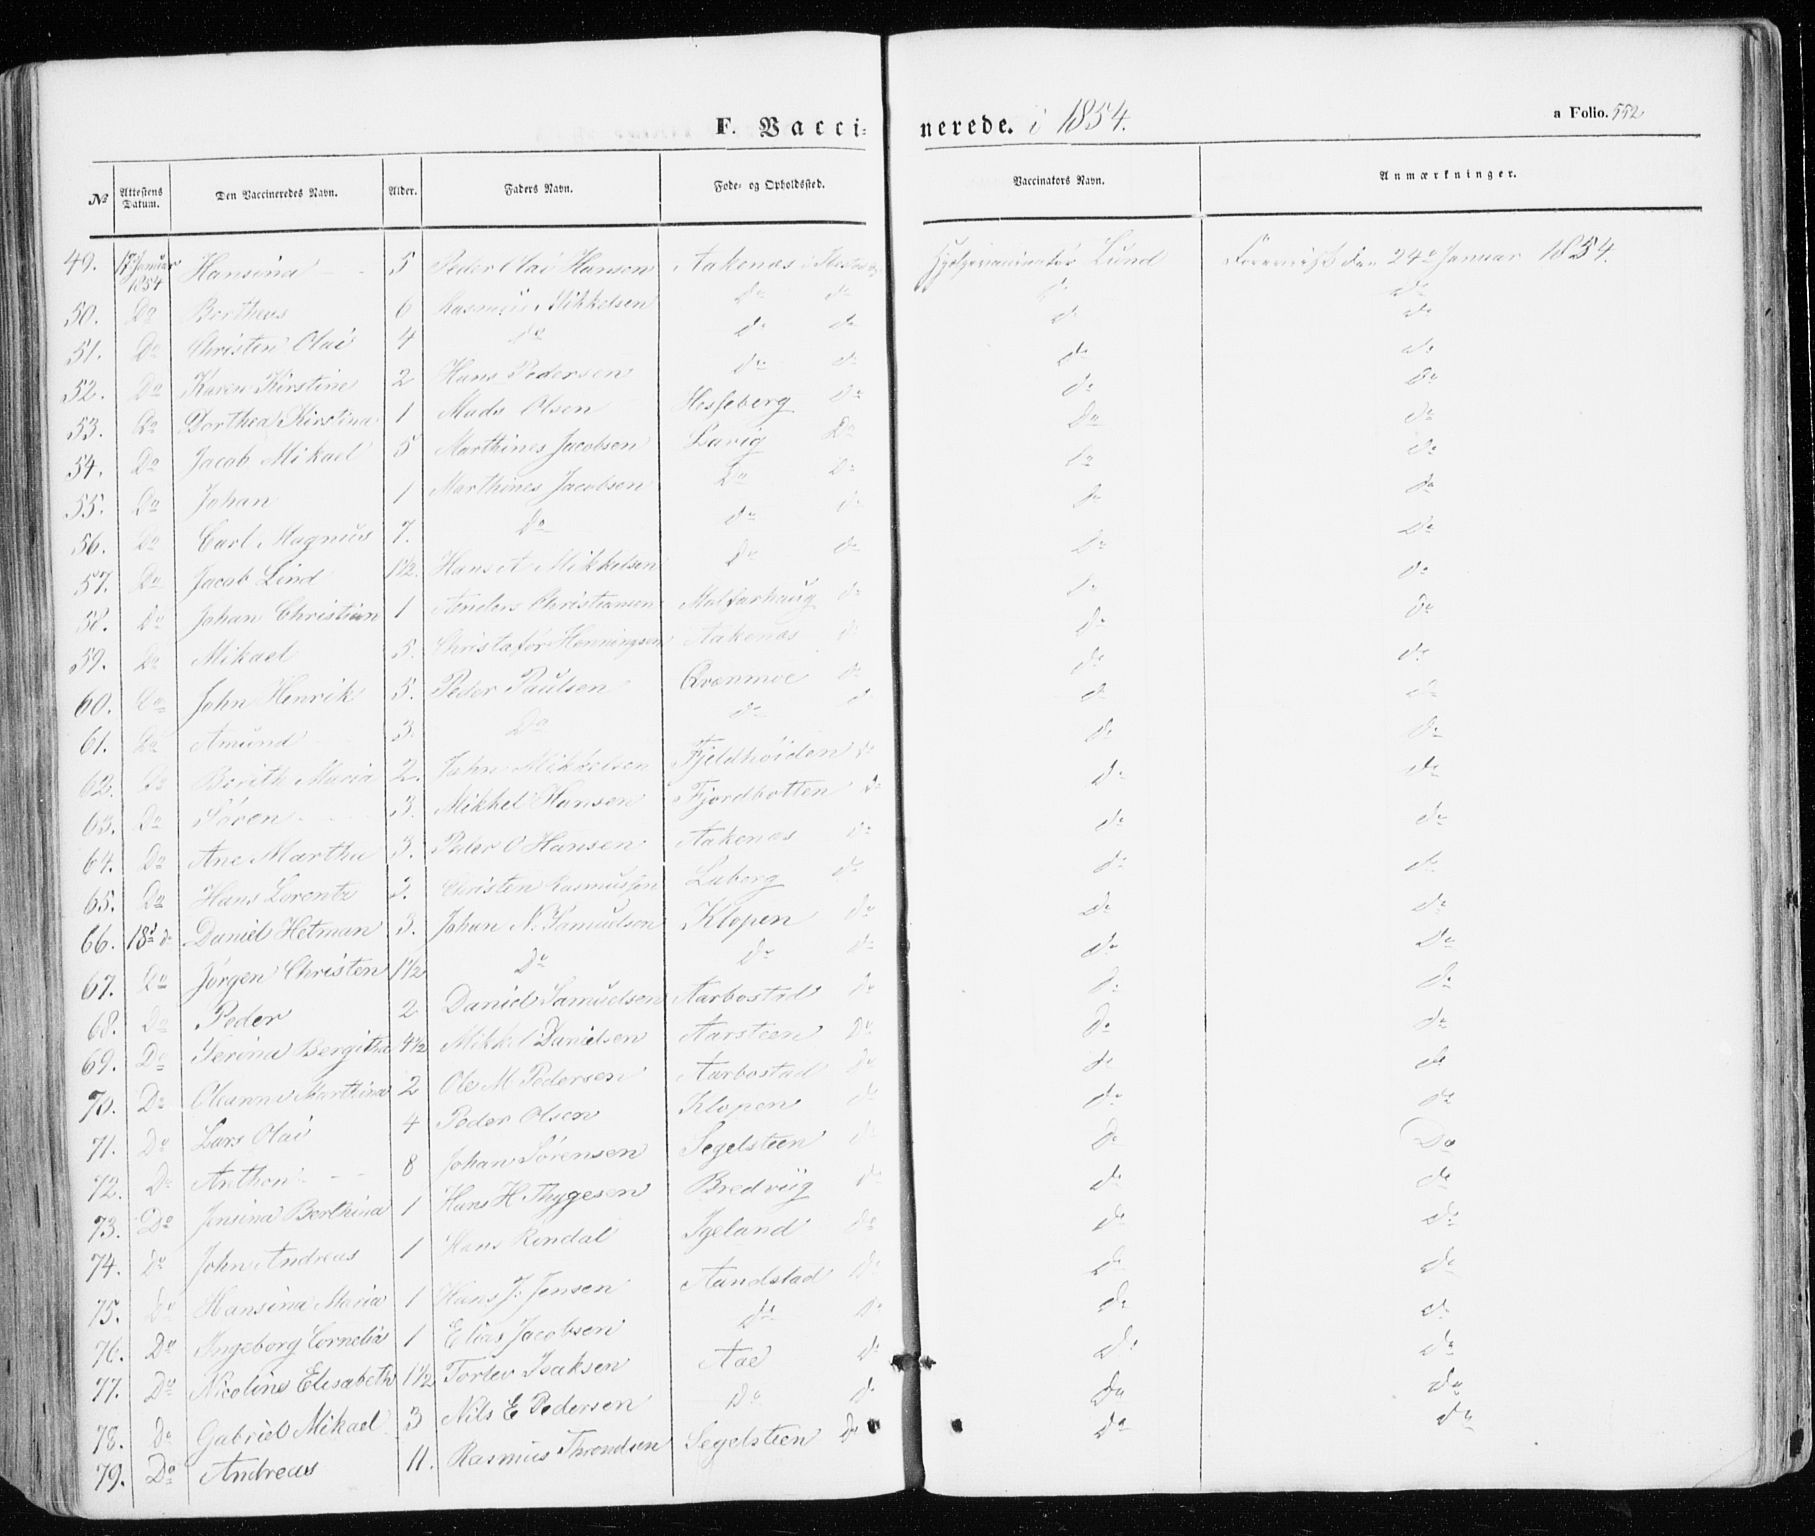 F. Vaccinerede. i 1854. a Folio. 552
№ Attestens Datum. Den Vaccineredes Navn. Alder. Faders Navn. Føde- og Opholdssted. Vaccinators Navn. Anmærkninger.
49. 17 Januar 1854 Hansina 5 Peder Olai Hansen Aakenæs Hjelpevaccinatør Lund Foreviist den 24de Januar 1854.
50. Do Bertheus 6 Rasmus Mikkelsen do do do do
51. Do Christen Olai 4 do do do do do
52. Do Karen Kirstine 2 Hans Pedersen do do do do
53. Do Dorthea Kirstina 1 Mads Olsen Hesseberg do do do
54. Do Jacob Mikael 5 Marthines Jacobsen Lavig Do Do do
55. Do Johan 1 Marthines Jacobsen Do Do do do
56. Do Carl Magnus 7. Do do do do do
57. Do Jacob Lind 1½. Hans A Mikkelsen Do do Do Do
58. Do Johan Christian 1 Anders Christiansen Molfarhaug do do do
59. Do Mikael 5. Christafør Henningsen Aakenæs do do do
60. Do John Henrik 5. Peder Paulsen Qvanmoe do do do
61. Do Amund 3. Do do do do do
62. Do Berith Maria 2. John Mikkelsen Fjeldhøiden do do do
63. Do Søren 3. Mikkel Hansen Fjordbotten do do do
64. Do Ane Martha 3. Peder O Hansen Aakenæs do do do
65. Do Hans Lorentz 2. Christen Rasmussen Luberg do do do
66. 18de do Daniel Hetman 3. Johan N. Samuelsen Klopen do do do
67. Do Jørgen Christen 1½ Do Do do do Do
68. Do Peder 2 Daniel Samuelsen Aarbostad do do do
69. Do Serina Bergitha 4½ Mikkel Danielsen Aarsteen do do do
70. Do Oleanna Marthina 2 Ole M Pedersen Aarbostad do do do
71. Do Lars Olai 4 Peder Olsen Klopen do do do
72. Do Anthon 8 Johan Sørensen Segelsteen do do Do
73. Do Jensina Berthina 1 Hans H Thygesen Bredviig do do do
74. Do John Andreas 1 Hans Rendal Igeland do do do
75. Do Hansina Maria 1 Hans J. Jensen Aandstad do do do
76. Do Ingeborg Cornelia 1 Elias Jacobsen Do Do do do
77. Do Nicoline Elisabeth 1½ Torlev Isaksen Aae Do do do
78. do Gabriel Mikael 3 Nils E Pedersen Do do Do do
79. Do Andreas 11. Rasmus Throndsen Segelsteen do do do